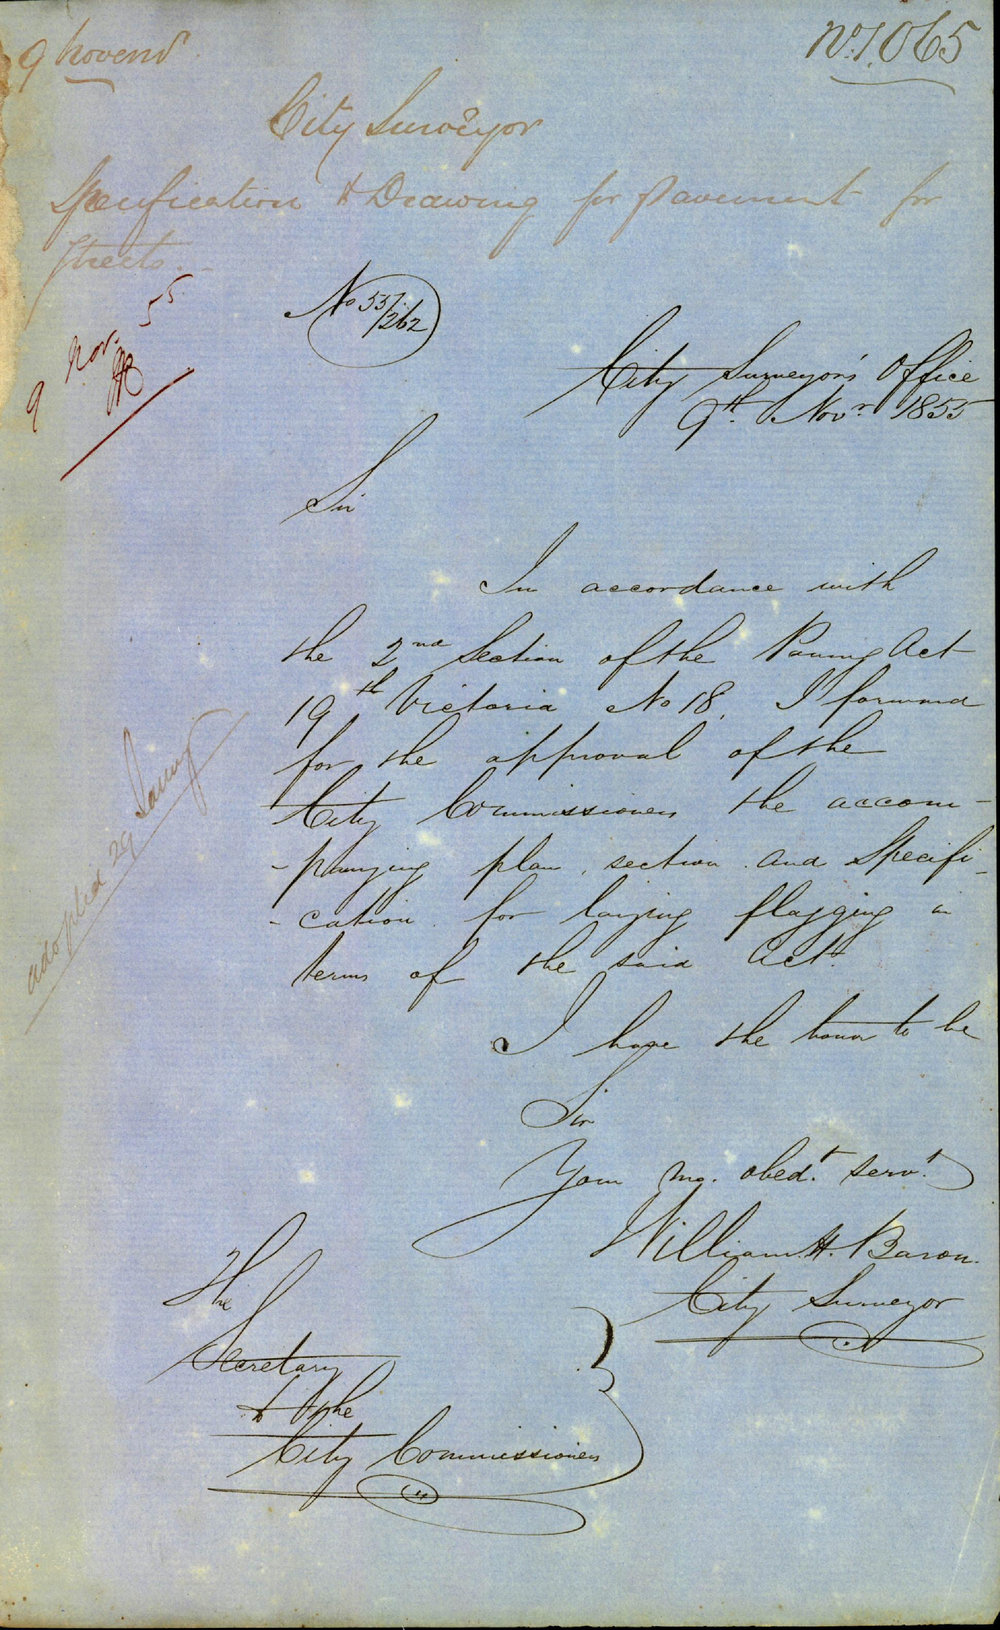 9 Novemr
No 1.065
City Surveyor
Specification & Drawing for pavement for
Streets.
9 Nov. 55
No 55/262
City Surveyor's Office
9th Novr 1855
Sir
In accordance with
the 2nd Section of the Paving Act
19th Victoria No 18, I forward
for the approval of the
City Commissioners the accom-
-panying plan, section and Specifi-
-cation for laying flagging in
terms of the said Act.
adopted 29
I have the honor to be
Sir
Your mo. obedt. servt.
William. H. Baron.
City Surveyor
The
Secretary
to the
City Commissioners